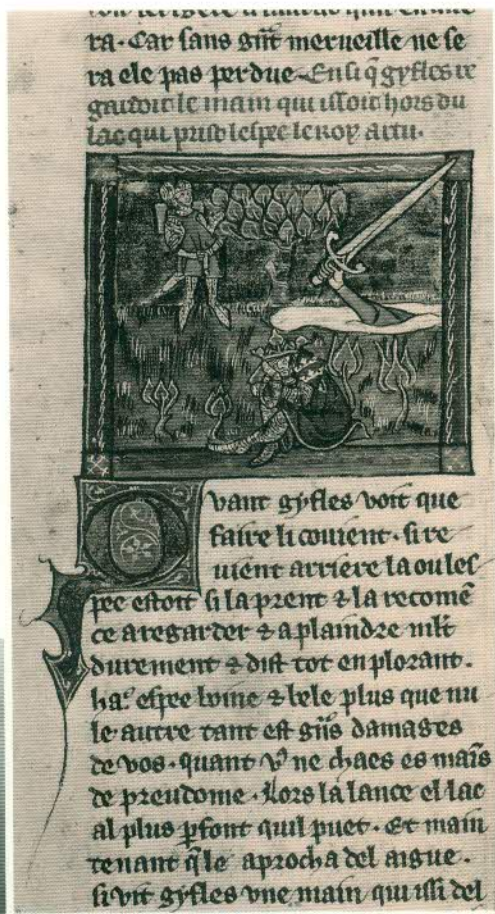 ra·Car sans gñt merueille ne se
ra ele pas perdue·Ensi q̃ gyfles re
gardoit le main qui issoit hors du
lac qui prist lespee le roy artu·
Qvant gyfles voit que
faire li couient·si re
uient arriere la ou les
pee estoit si la prent ⁊ la recomē
ce a regarder ⁊ a plaindre ml't
durement ⁊ dist tot en plorant·
ha· espee boine ⁊ bele plus que nu
le autre tant est gñs damages
de vos·quant v̄ ne chaes es mains
de preudome·Lors la lance el lac
al plus pfont quil puet·Et main
tenant q̃le aprocha del aigue·
si vit gyfles vne main qui issi del